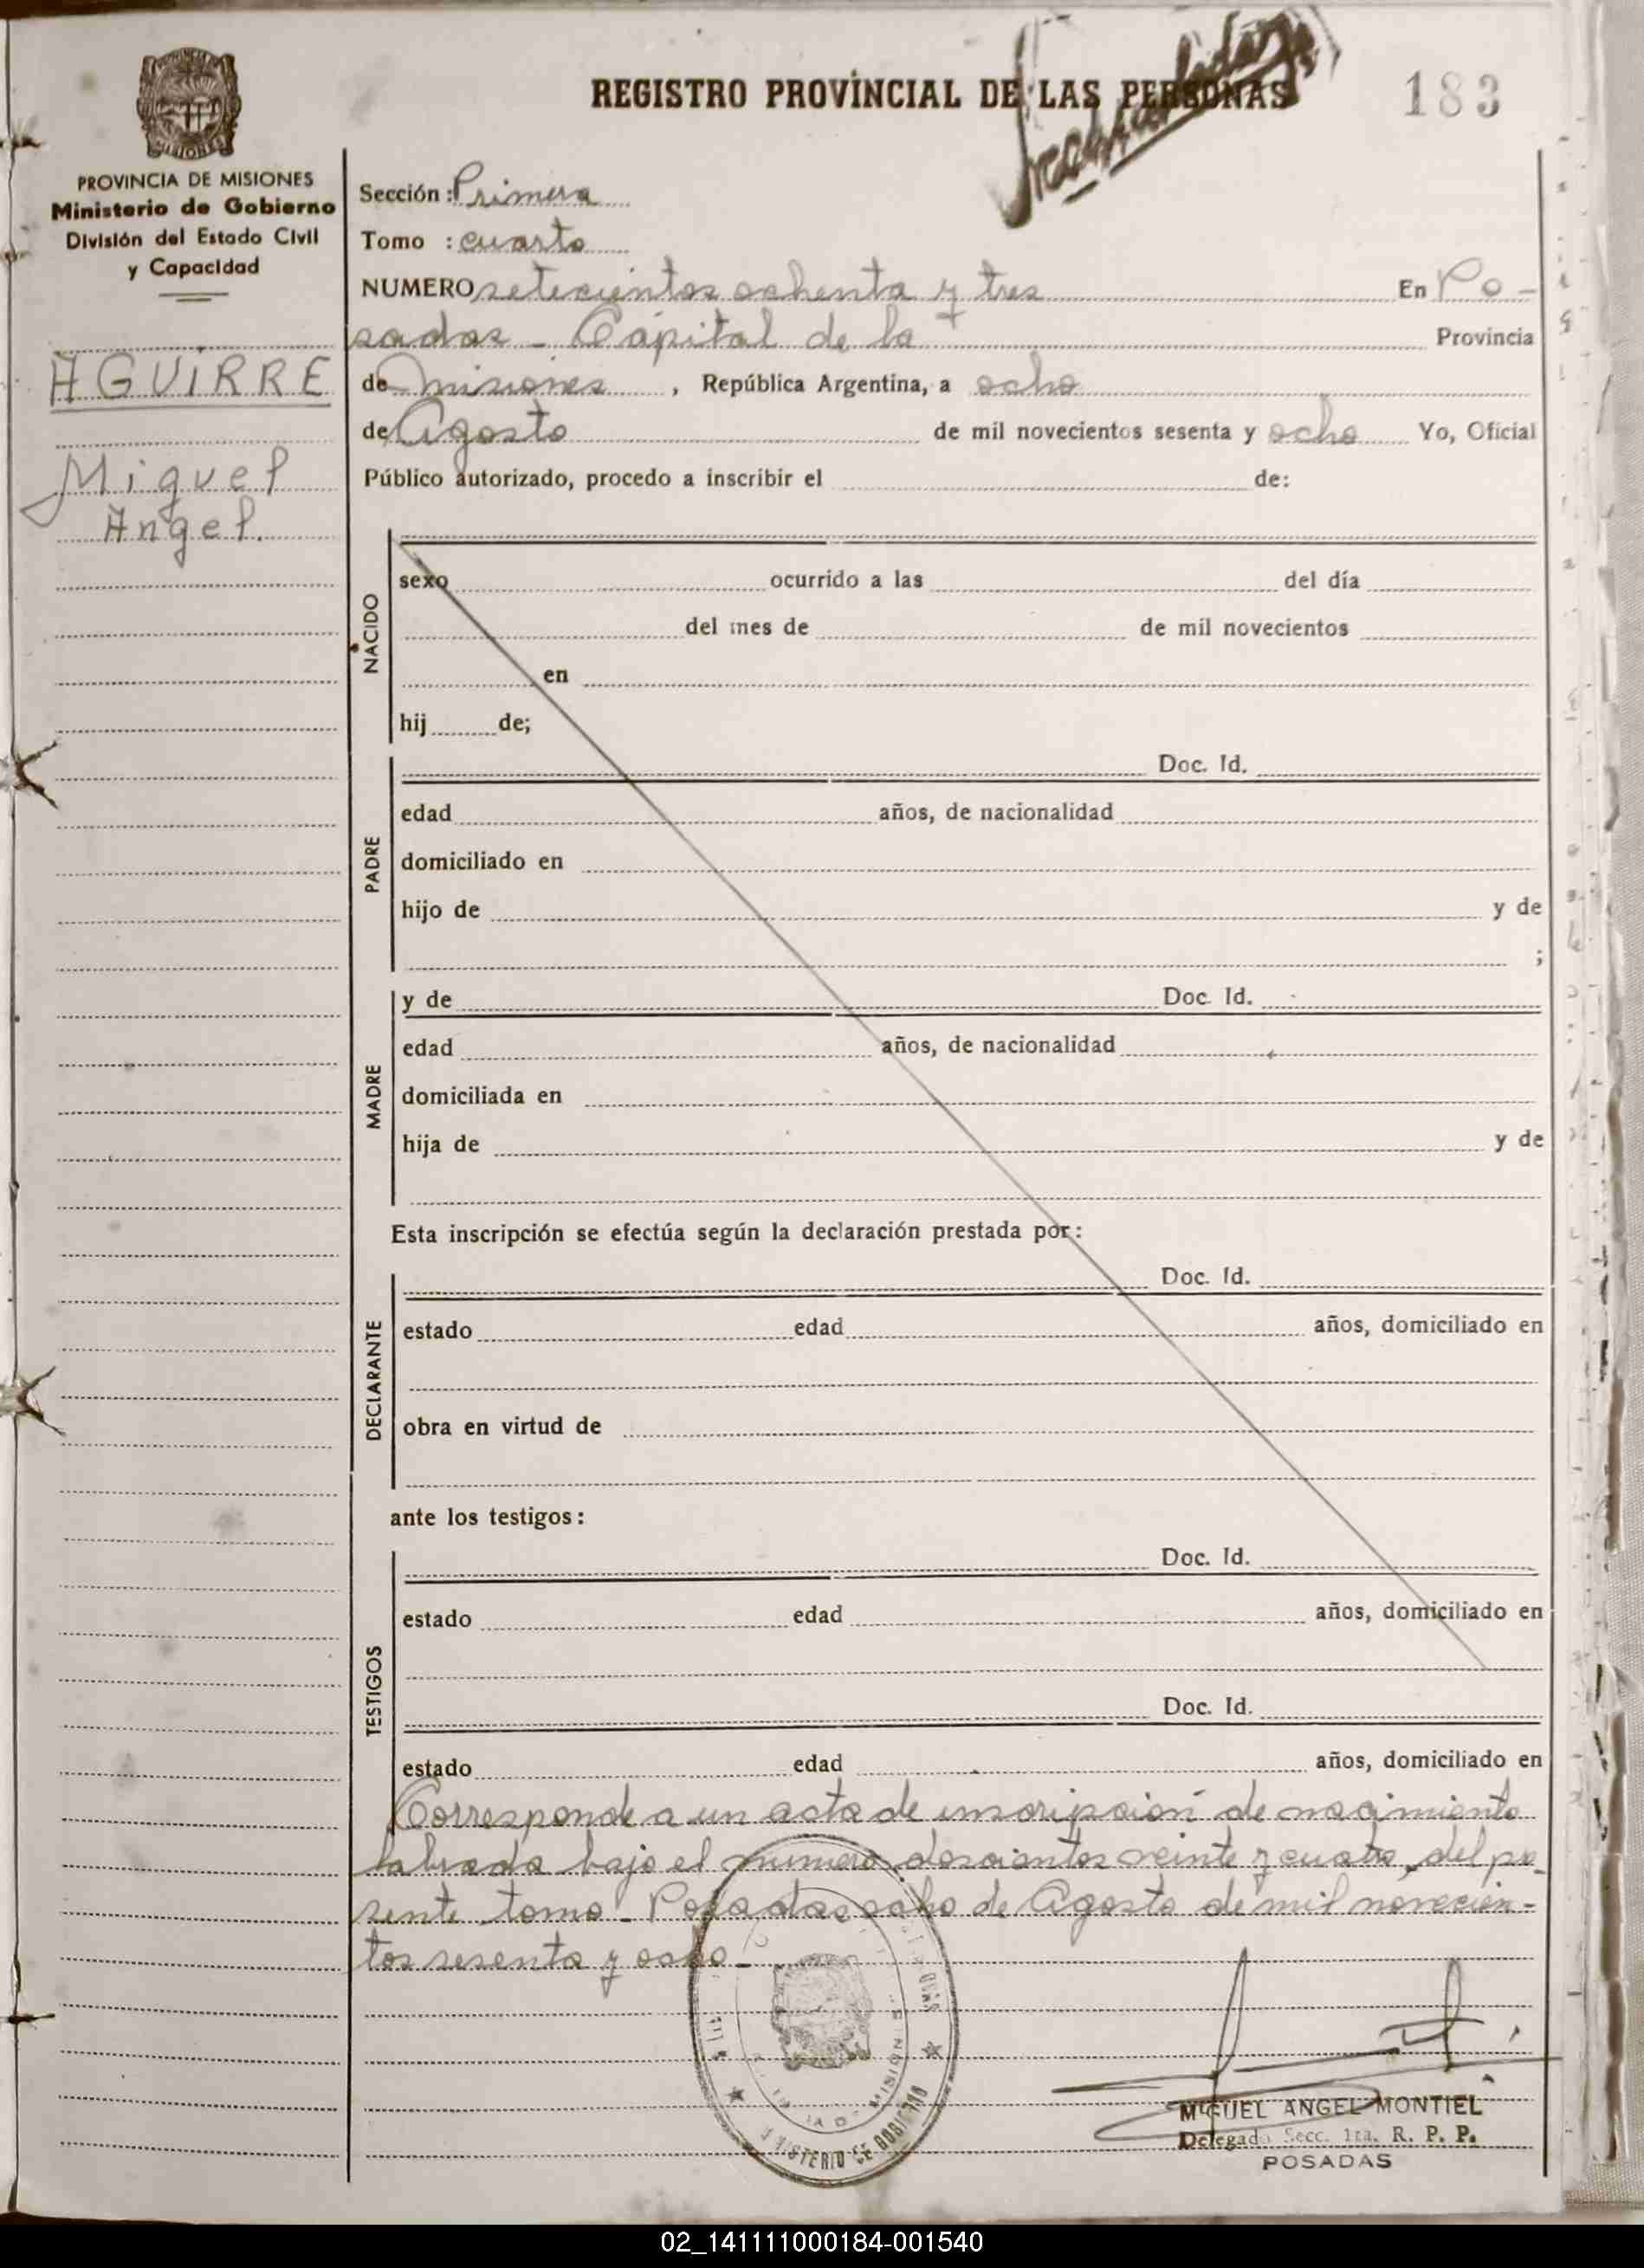 REGISTRO PROVINCIAL DE LAS PERSONAS
183
PROVINCIA DE MISIONES
Ministerio de Gobierno
División del Estado Civil
y Capacidad
AGUIRRE
Miguel
Angel.
Sección: Primera
Tomo : cuarto
NUMERO setecientos ochenta y tres En Po-
sadas - Capital de la Provincia
de misiones, República Argentina, a ocho
de Agosto de mil novecientos sesenta y ocho Yo, Oficial
Público autorizado, procedo a inscribir el de:
NACIDO
sexo ocurrido a las del día
del mes de de mil novecientos
en
hij de;
PADRE
Doc. Id.
edad años, de nacionalidad
domiciliado en
hijo de y de
;
MADRE
y de Doc. Id.
edad años, de nacionalidad
domiciliada en
hija de y de
Esta inscripción se efectúa según la declaración prestada por:
DECLARANTE
Doc. Id.
estado edad años, domiciliado en
obra en virtud de
ante los testigos:
TESTIGOS
Doc. Id.
estado edad años, domiciliado en
Doc. Id.
estado edad años, domiciliado en
Corresponde a un acta de inscripción de nacimiento
labrada bajo el numero doscientos veinte y cuatro, del pre-
sente tomo - Posadas ocho de Agosto de mil novecien-
tos sesenta y ocho -
MINISTERIO DE GOBIERNO
MIGUEL ANGEL MONTIEL
Delegado Secc. 1ra. R. P. P.
POSADAS
02_141111000184-001540